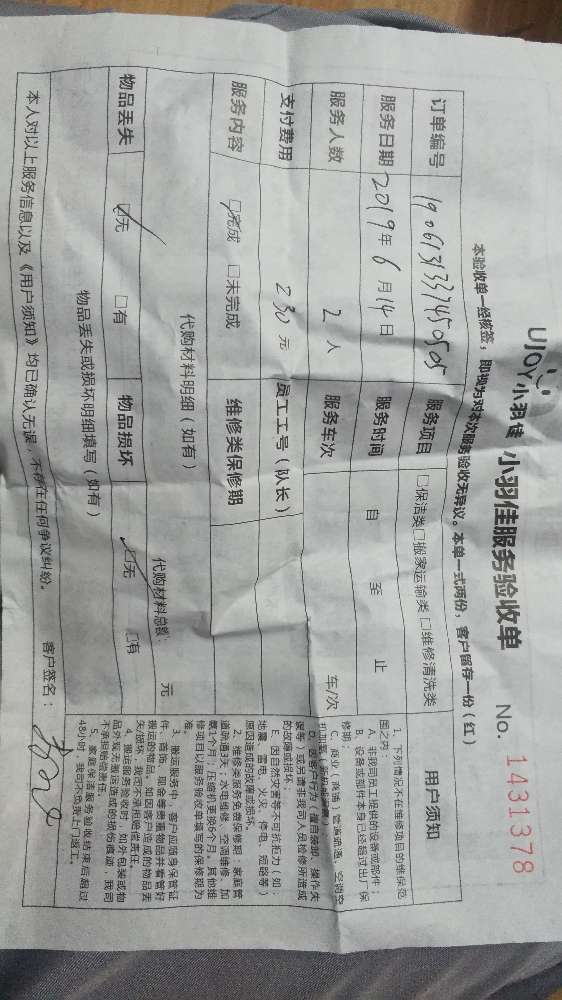 UJOY小羽佳 小羽佳服务验收单 No. 1431378
本验收单一经核签，即视为对本次服务验收无异议。本单一式两份，客户留存一份（红）
订单编号 服务项目 □保洁类□搬家运输类 □维修清洗类
服务日期 2019年 6月14日 服务时间 自 至 止
服务人数 2 人 服务车次 车/次
支付费用 230 元 员工工号（队长）
服务内容 □完成 □未完成 维修类保修期
代购材料明细（如有） 代购材料总额： 元
物品丢失 □无 □有 物品损坏 □无 □有
物品丢失或损坏明细填写（如有）
本人对以上服务信息以及《用户须知》均已确认无误，不存在任何争议纠纷。 客户签名：
用户须知
1、下列情况不在维修项目的维保范
围之内：
A、非我司员工提供的设备或部件
B、设备或部件本身已经超过出厂保
修期
C、商业（商铺）管道疏通、空调空
D、因客户行为（擅自装卸、操作失
误等）或另请非我司人员检修所造成
的故障或损坏；
E、因自然灾害等不可抗拒力（如：
地震、雷电、火灾、停电、短路等）
原因造成的故障或损坏。
2、维修类服务免费保修期：家庭管
道疏通3天，水电维修、空调维修、加
氨1个月；压缩机更换6个月；其他维
修项目以服务验收单填写的保修期为
准。
3、搬运服务中，客户应随身保管证
件、首饰、现金等贵重物品并看管好
搬运的物品。如因客户造成的物品丢
失/损坏，我司不承担赔偿责任。
4、搬运服务验收时，如外包装或物
品外观无搬运造成的损伤痕迹，我司
不承担赔偿责任。
5、家庭保洁服务验收结束后超过
48小时，我司不负责上门返工。